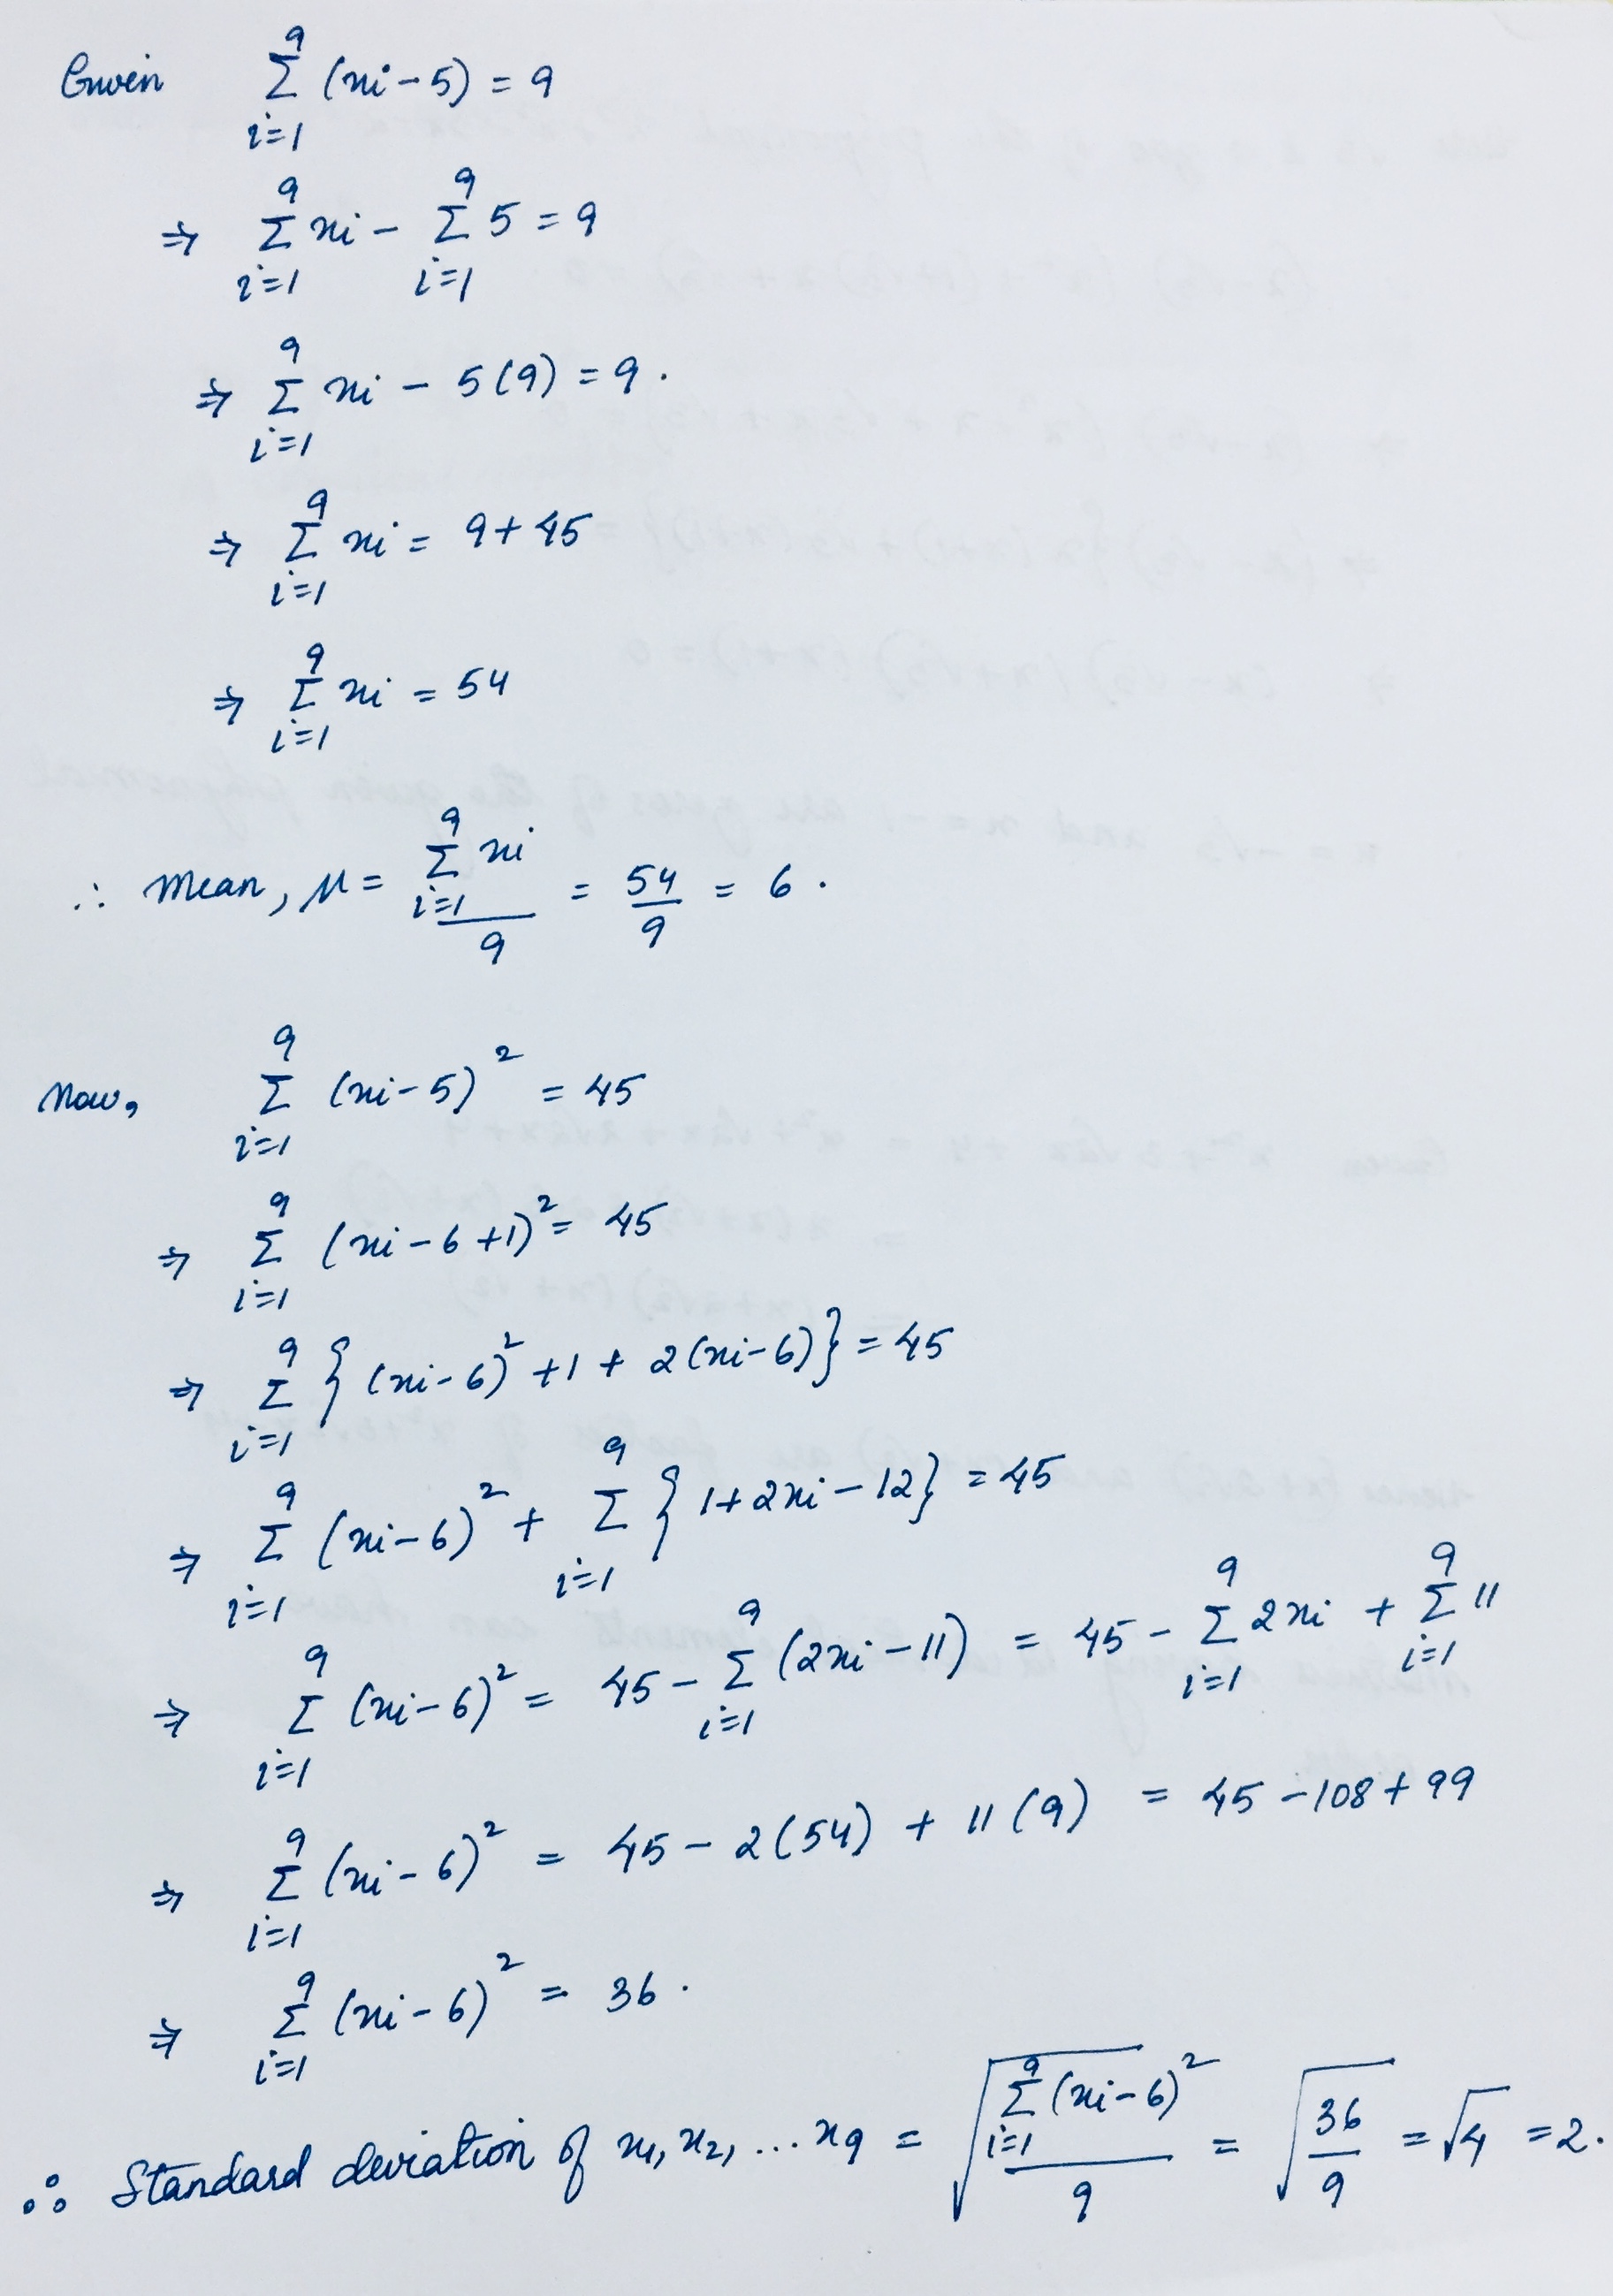 Given $\sum_{i=1}^{9} (x_i - 5) = 9$
$\Rightarrow \sum_{i=1}^{9} x_i - \sum_{i=1}^{9} 5 = 9$
$\Rightarrow \sum_{i=1}^{9} x_i - 5(9) = 9.$
$\Rightarrow \sum_{i=1}^{9} x_i = 9 + 45$
$\Rightarrow \sum_{i=1}^{9} x_i = 54$
$\therefore$ Mean, $\mu = \frac{\sum_{i=1}^{9} x_i}{9} = \frac{54}{9} = 6.$
Now, $\sum_{i=1}^{9} (x_i - 5)^2 = 45$
$\Rightarrow \sum_{i=1}^{9} (x_i - 6 + 1)^2 = 45$
$\Rightarrow \sum_{i=1}^{9} \{(x_i - 6)^2 + 1 + 2(x_i - 6)\} = 45$
$\Rightarrow \sum_{i=1}^{9} (x_i - 6)^2 + \sum_{i=1}^{9} \{1 + 2x_i - 12\} = 45$
$\Rightarrow \sum_{i=1}^{9} (x_i - 6)^2 = 45 - \sum_{i=1}^{9} (2x_i - 11) = 45 - \sum_{i=1}^{9} 2x_i + \sum_{i=1}^{9} 11$
$\Rightarrow \sum_{i=1}^{9} (x_i - 6)^2 = 45 - 2(54) + 11(9) = 45 - 108 + 99$
$\Rightarrow \sum_{i=1}^{9} (x_i - 6)^2 = 36.$
$\therefore$ Standard deviation of $x_1, x_2, \ldots x_9 = \sqrt{\frac{\sum_{i=1}^{9} (x_i - 6)^2}{9}} = \sqrt{\frac{36}{9}} = \sqrt{4} = 2.$